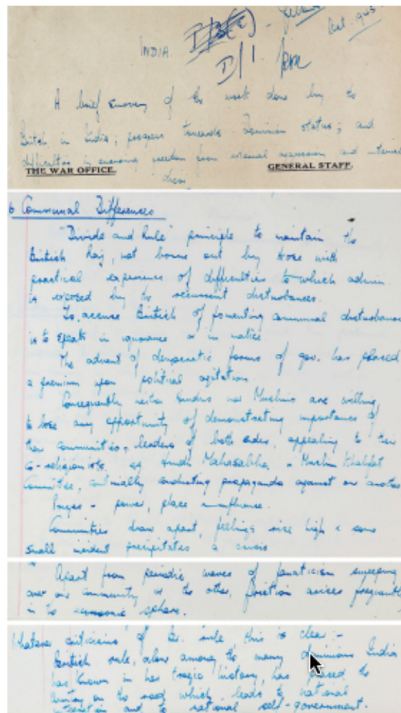 INDIA
D/1
A brief survey of the work done by the
British in India; progress towards Dominion status; and
difficulties in
THE WAR OFFICE. GENERAL STAFF.
them
6 Communal Differences
"Divide and Rule" principle to maintain the
British Raj, not borne out by those with
practical experience of difficulties to which admin
is exposed by the recurrent disturbances.
To accuse British of fomenting communal disturbances
is to speak in ignorance or in malice
The advent of democratic forms of gov. has placed
a premium upon political agitation.
Consequently neither Hindus nor Muslims are willing
to lose any opportunity of demonstrating importance of
their communities, leaders of both sides, appealing to their
co-religionists, eg Hindu Mahasabha, Muslim Khalifat
Committee, continually conducting propaganda against one another
power, place & influence.
Communities draw apart, feelings rise high & some
small incident precipitates a crisis
Apart from periodic waves of fanaticism sweeping
over one community or the other, friction arises frequently
in the economic sphere.
Whatever criticisms of Br. rule, this is clear:-
British rule, alone among the many dominions India
has known in her tragic history, has placed the
country on the road which leads to national
and to national self-government.